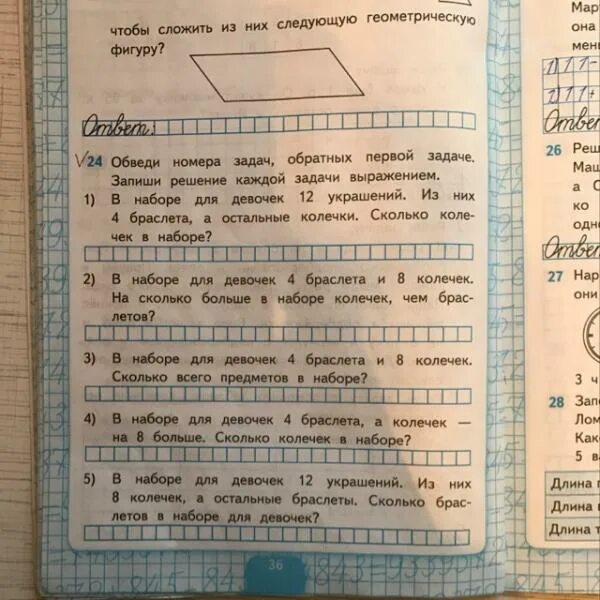 чтобы сложить из них следующую геометрическую
фигуру?
Ответ:
√24 Обведи номера задач, обратных первой задаче.
Запиши решение каждой задачи выражением.
1) В наборе для девочек 12 украшений. Из них
4 браслета, а остальные колечки. Сколько коле-
чек в наборе?
2) В наборе для девочек 4 браслета и 8 колечек.
На сколько больше в наборе колечек, чем брас-
летов?
3) В наборе для девочек 4 браслета и 8 колечек.
Сколько всего предметов в наборе?
4) В наборе для девочек 4 браслета, а колечек —
на 8 больше. Сколько колечек в наборе?
5) В наборе для девочек 12 украшений. Из них
8 колечек, а остальные браслеты. Сколько брас-
летов в наборе для девочек?
36
Мар
она
мен
1) 1 1 -
1) 1 1 +
Отве
26 Реш
Маш
а С
ко
одно
Ответ
27 Нар
они
3 ч
28 Запо
Лом
Како
5 ва
Длина
Длина
Длина т